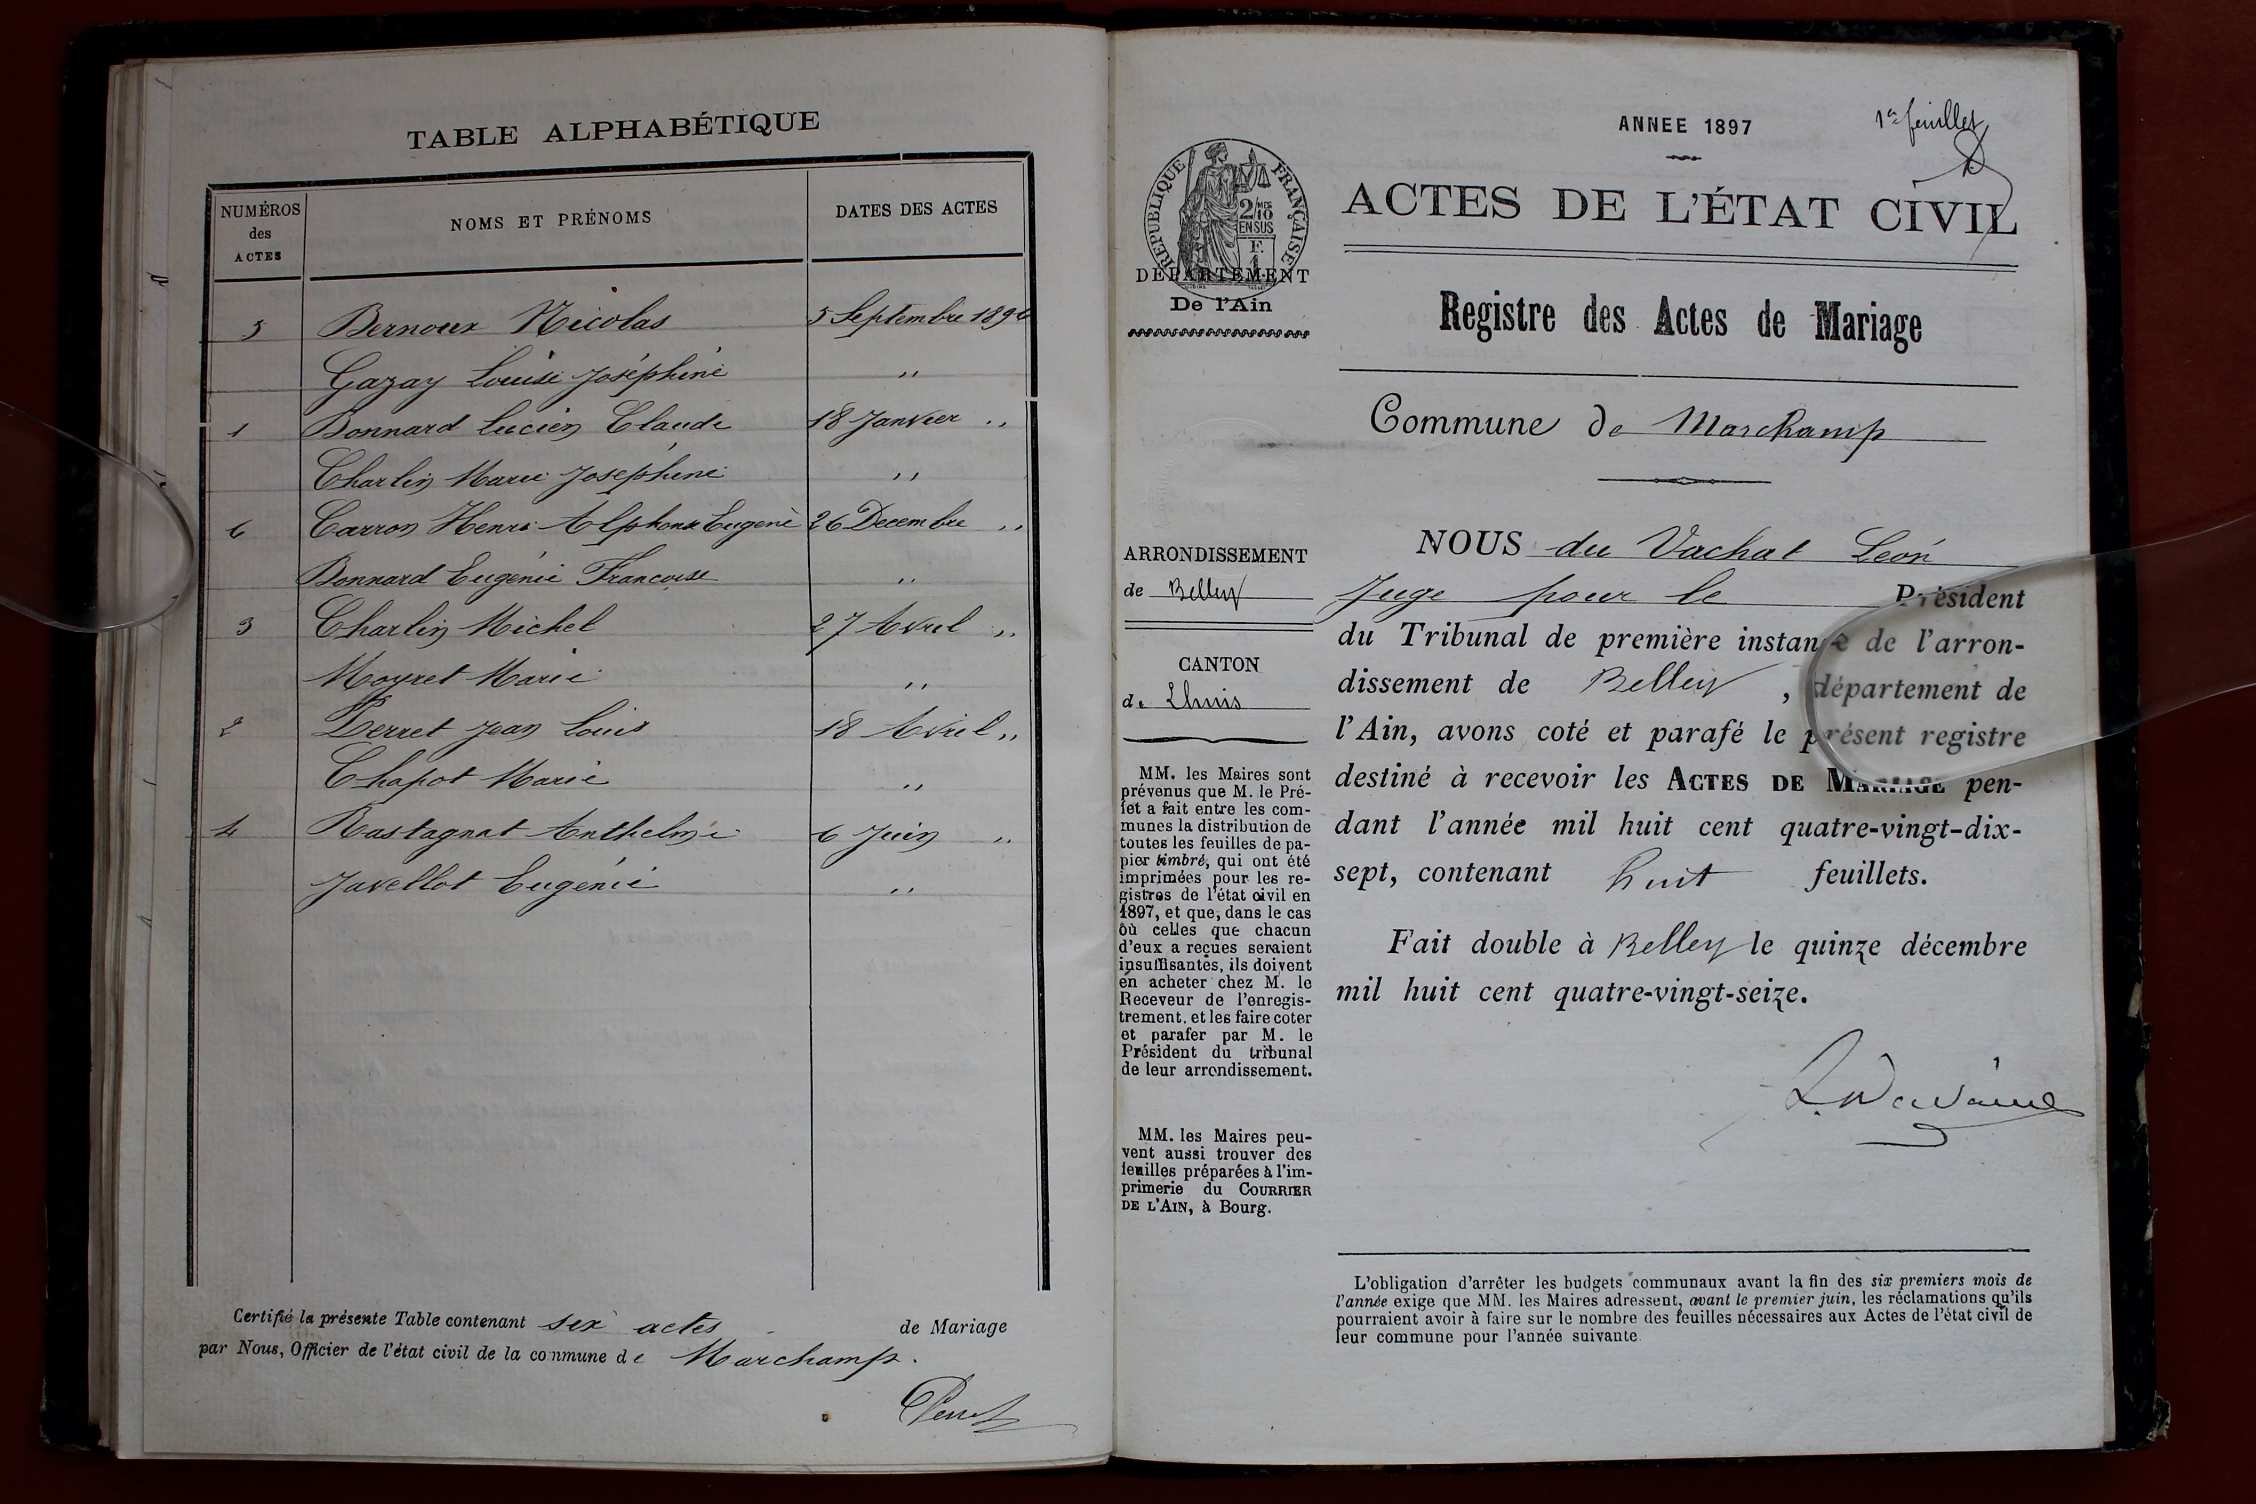 TABLE ALPHABÉTIQUE
NUMÉROS
des
ACTES
NOMS ET PRÉNOMS
DATES DES ACTES
5 Bernoux Nicolas 5 Septembre 1896
Gazay Louise Joséphine "
1 Bonnard Lucien Claude 18 Janvier "
Charlin Marie Joséphine "
6 Carron Henri Alphonse Eugène 26 Decembre "
Bonnard Eugénie Francoise "
3 Charlin Michel 27 Avril "
Moyret Marie "
2 Perret Jean Louis 18 Avril "
Chapot Marie "
4 Rastagnat Anthelme 6 Juin "
Javellot Eugénie "
Certifié la présente Table contenant six actes de Mariage
par Nous, Officier de l'état civil de la commune de Marchamp.
Perret
ANNEE 1897
1er feuillet
RÉPUBLIQUE FRANÇAISE
2/10
EN SUS
DÉPARTEMENT
De l'Ain
ACTES DE L'ÉTAT CIVIL
Registre des Actes de Mariage
Commune de Marchamp
ARRONDISSEMENT
de Belley
CANTON
de Lhuis
MM. les Maires sont
prévenus que M. le Pré-
fet a fait entre les com-
munes la distribution de
toutes les feuilles de pa-
pier timbré, qui ont été
imprimées pour les re-
gistres de l'état civil en
1897, et que, dans le cas
où celles que chacun
d'eux a reçues seraient
insuffisantes, ils doivent
en acheter chez M. le
Receveur de l'enregis-
trement, et les faire coter
et parafer par M. le
Président du tribunal
de leur arrondissement.
MM. les Maires peu-
vent aussi trouver des
feuilles préparées à l'im-
primerie du COURRIER
DE L'AIN, à Bourg.
NOUS du Vachat Leon
Juge pour le Président
du Tribunal de première instance de l'arron-
dissement de Belley, département de
l'Ain, avons coté et parafé le présent registre
destiné à recevoir les ACTES DE MARIAGE pen-
dant l'année mil huit cent quatre-vingt-dix-
sept, contenant huit feuillets.
Fait double à Belley le quinze décembre
mil huit cent quatre-vingt-seize.
L'obligation d'arrêter les budgets communaux avant la fin des six premiers mois de
l'année exige que MM. les Maires adressent, avant le premier juin, les réclamations qu'ils
pourraient avoir à faire sur le nombre des feuilles nécessaires aux Actes de l'état civil de
leur commune pour l'année suivante